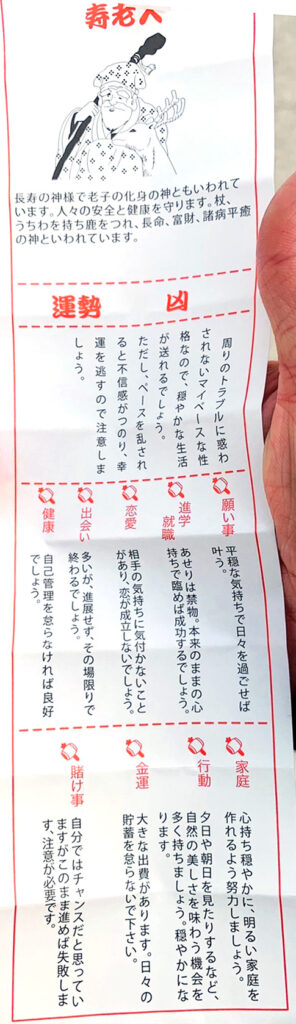 寿老人
長寿の神様で老子の化身の神ともいわれて
います。人々の安全と健康を守ります。杖、
うちわを持ち鹿をつれ、長命、富財、諸病平癒
の神といわれています。
運勢 凶
周りのトラブルに惑わ
されないマイペースな性
格なので、穏やかな生活
が送れるでしょう。
ただし、ペースを乱され
ると不信感がつのり、幸
運を逃すので注意しま
しょう。
願い事
平穏な気持ちで日々を過ごせば
叶う。
進学
就職
あせりは禁物。本来のままの心
持ちで臨めば成功するでしょう。
恋愛
相手の気持ちに気付かないこと
があり、恋が成立しないでしょう。
出会い
多いが、進展せず、その場限りで
終わるでしょう。
健康
自己管理を怠らなければ良好
でしょう。
家庭
心持ち穏やかに、明るい家庭を
作れるよう努力しましょう。
行動
夕日や朝日を見たりするなど、
自然の美しさを味わう機会を
多く持ちましょう。穏やかにな
ります。
金運
大きな出費があります。日々の
貯蓄を怠らないで下さい。
賭け事
自分ではチャンスだと思ってい
ますがこのまま進めば失敗しま
す、注意が必要です。